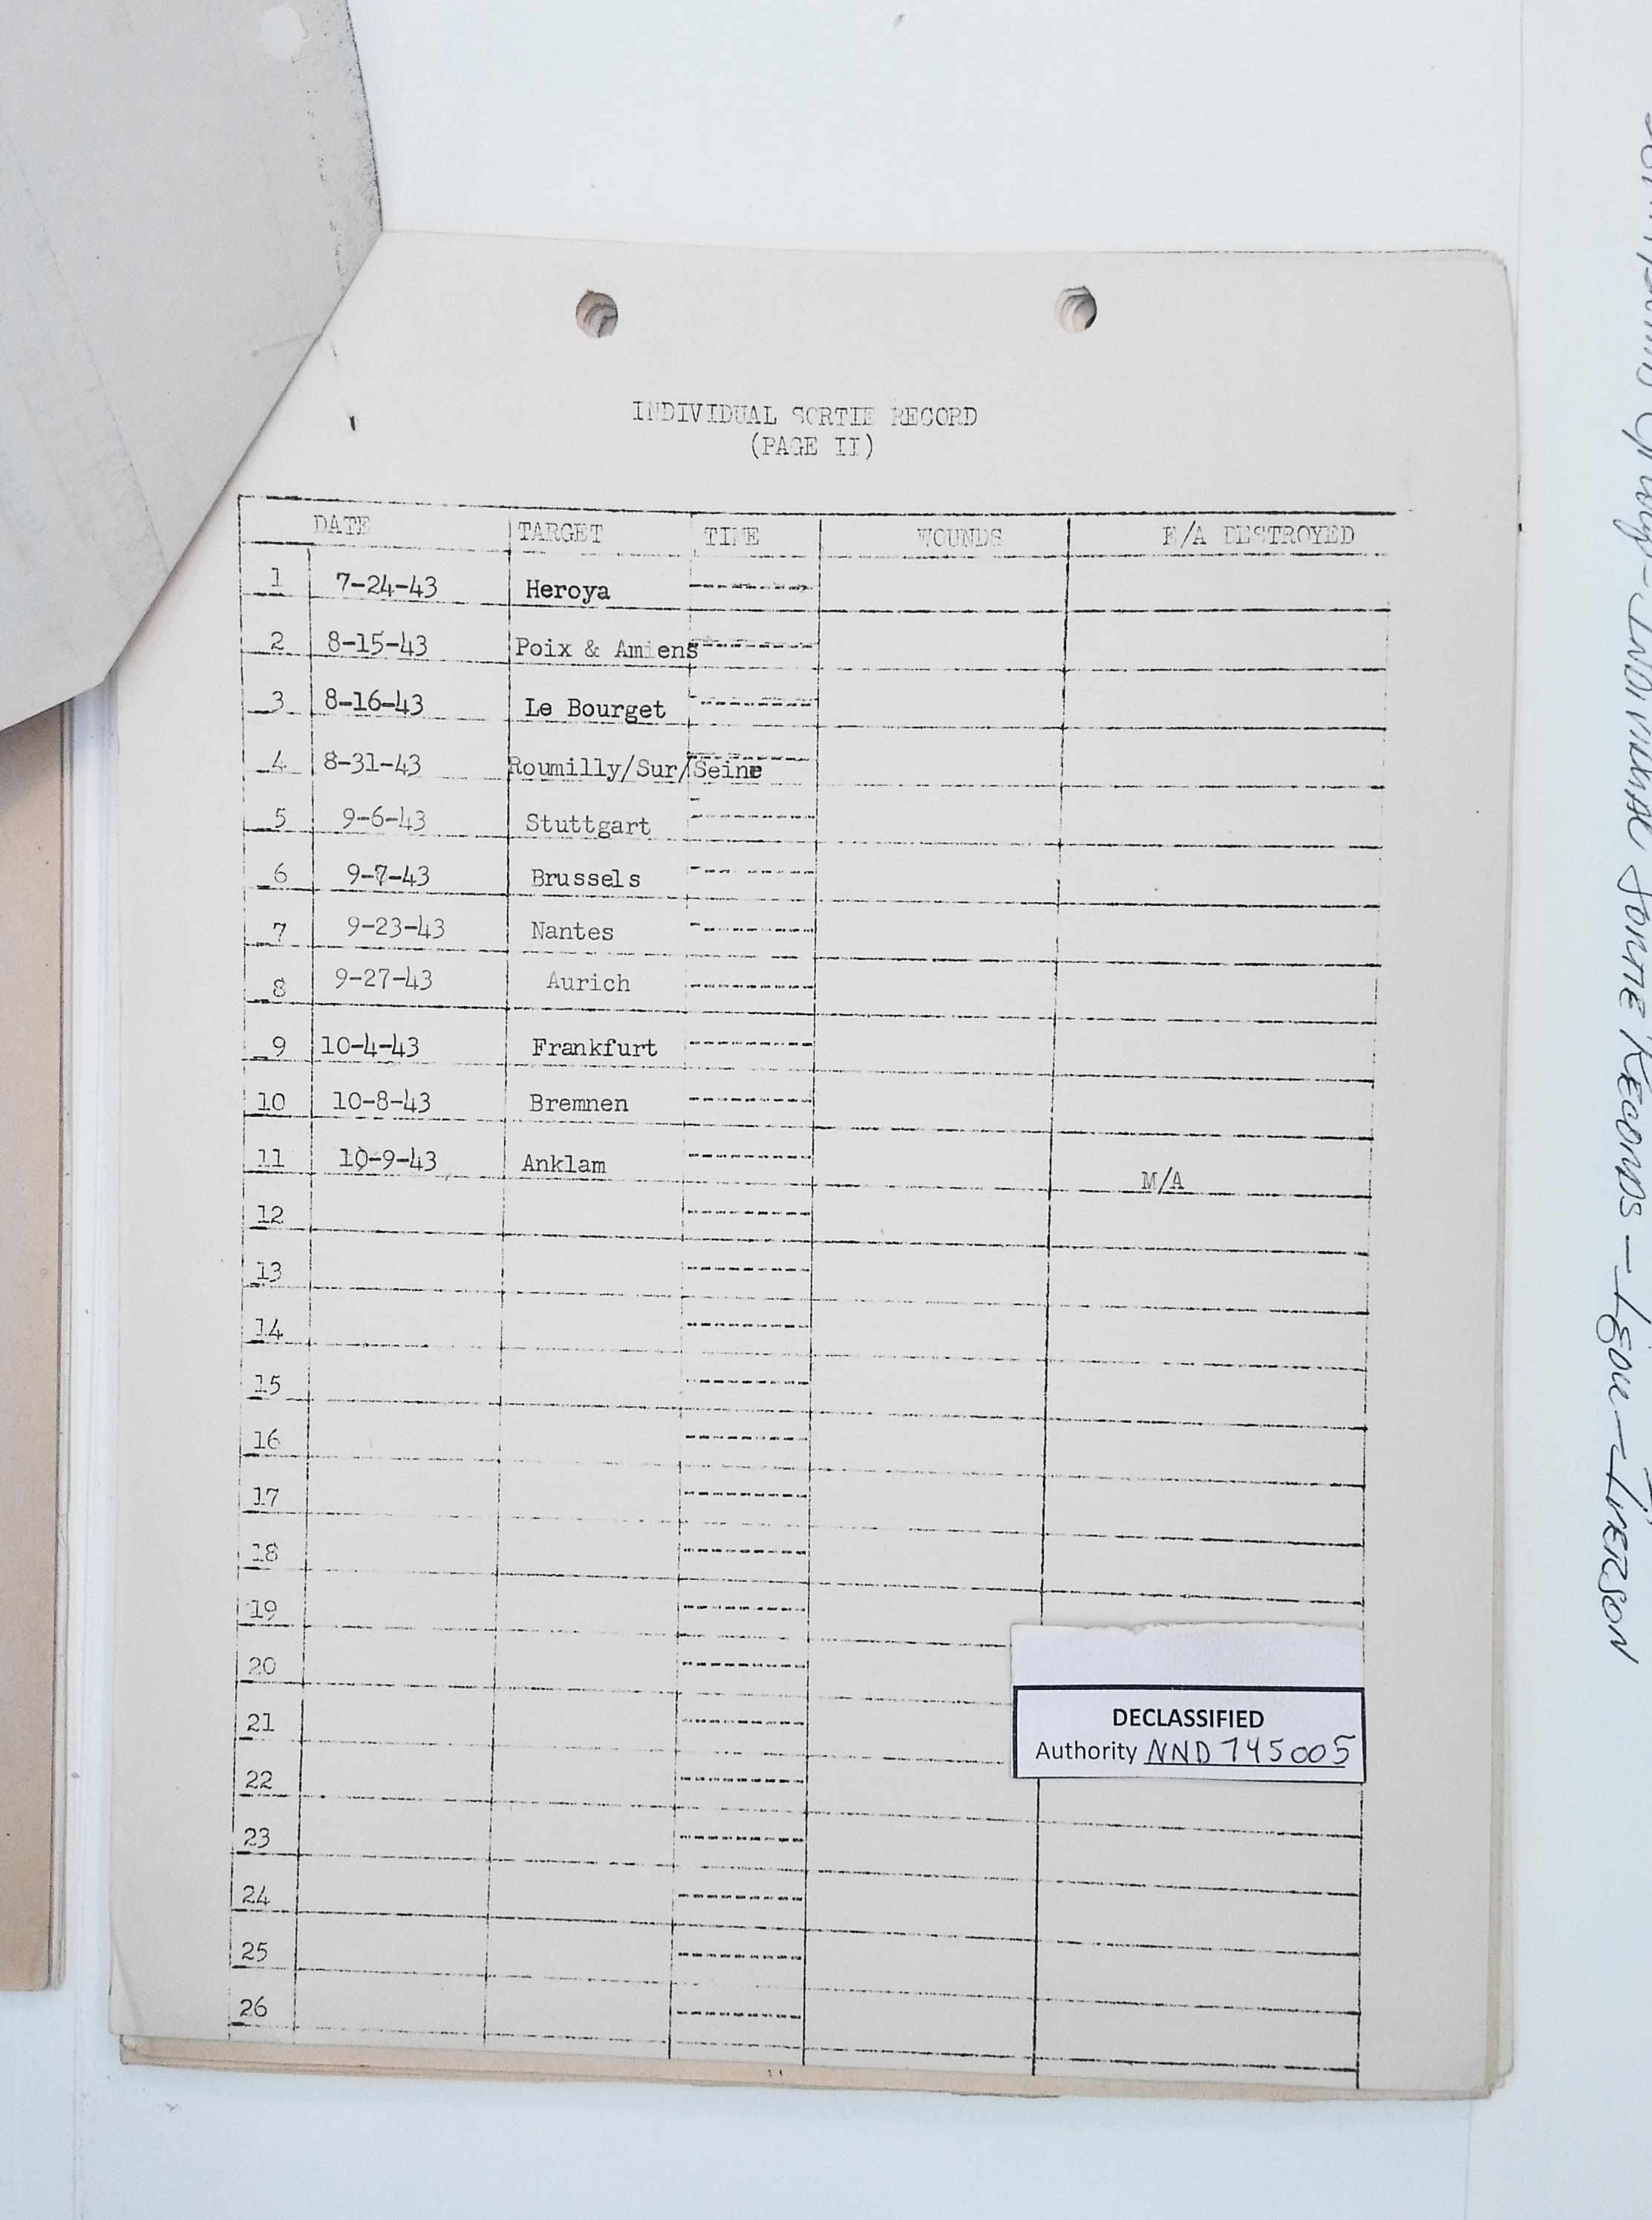 INDIVIDUAL SORTIE RECORD
(PAGE II)
DATE TARGET TIME WOUNDS E/A DESTROYED
1 7-24-43 Heroya
2 8-15-43 Poix & Amiens
3 8-16-43 Le Bourget
4 8-31-43 Roumilly/Sur/Seine
5 9-6-43 Stuttgart
6 9-7-43 Brussels
7 9-23-43 Nantes
8 9-27-43 Aurich
9 10-4-43 Frankfurt
10 10-8-43 Bremnen
11 10-9-43 Anklam M/A
12
13
14
15
16
17
18
19
20
21
22
23
24
25
26
DECLASSIFIED
Authority NND 745005
Group - INDIVIDUAL SORTIE RECORDS - IERSON